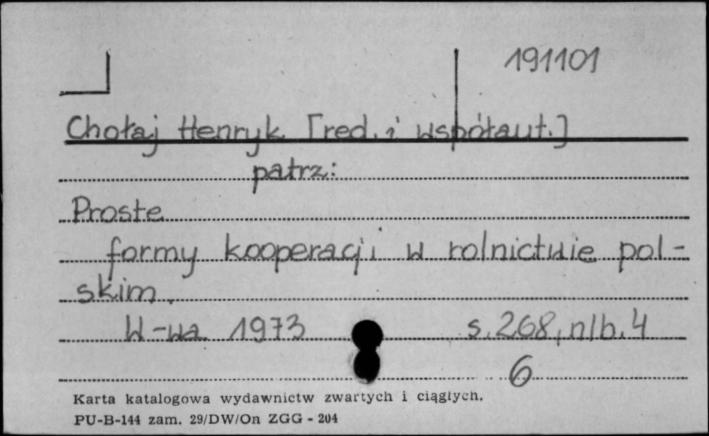 191101
Chołaj Henryk [red. i współaut.]
patrz:
Proste
formy kooperacji w rolnictwie pol-
skim.
W-wa 1973 s. 268, nlb. 4
6
Karta katalogowa wydawnictw zwartych i ciągłych.
PU-B-144 zam. 29/DW/On ZGG - 204